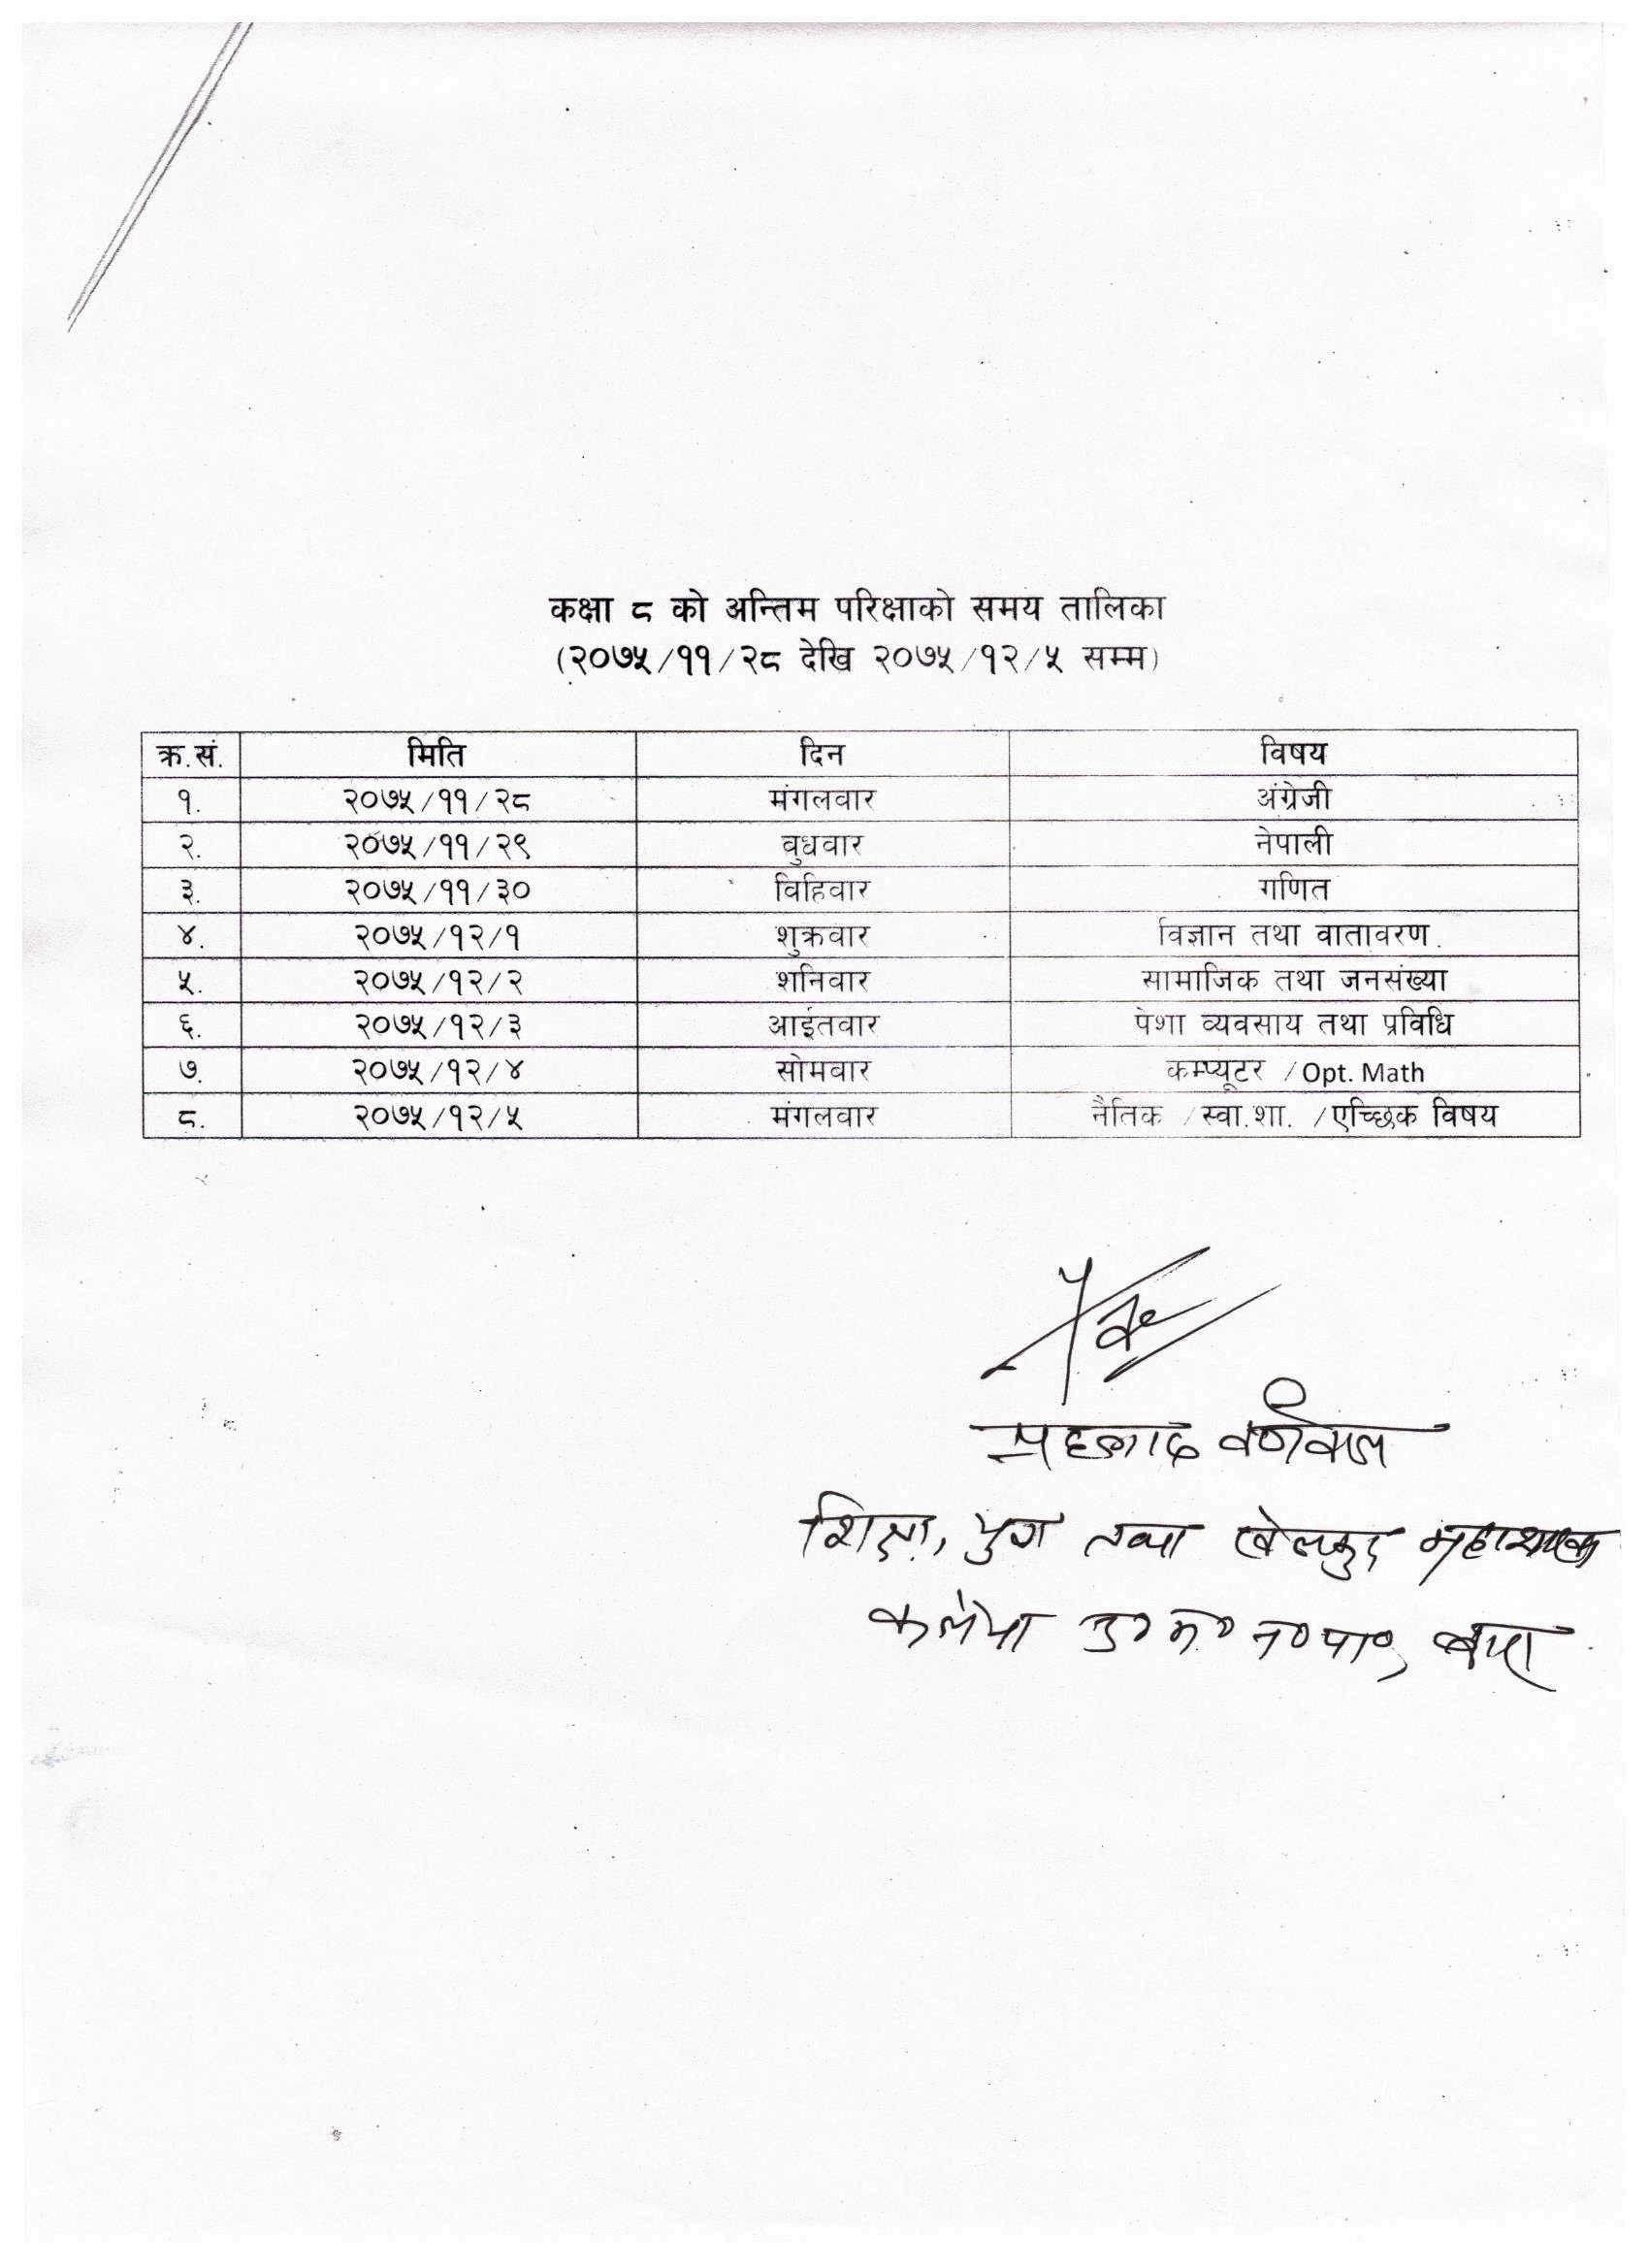 कक्षा ८ को अन्तिम परिक्षाको समय तालिका
(२०७५/११/२८ देखि २०७५/१२/५ सम्म)
क्र.सं. मिति दिन विषय
१. २०७५/११/२८ मंगलवार अंग्रेजी
२. २०७५/११/२९ वुधवार नेपाली
३. २०७५/११/३० विहिवार गणित
४. २०७५/१२/१ शुक्रवार विज्ञान तथा वातावरण
५. २०७५/१२/२ शनिवार सामाजिक तथा जनसंख्या
६. २०७५/१२/३ आईतवार पेशा व्यवसाय तथा प्रविधि
७. २०७५/१२/४ सोमबार कम्प्यूटर /Opt. Math
८. २०७५/१२/५ मंगलवार नैतिक /स्वा.शा. /एच्छिक विषय
प्रहलाद वर्णवाल
शिक्षा, युवा तथा खेलकुद महाशाखा
कलैया उ०म०न०पा०, बारा